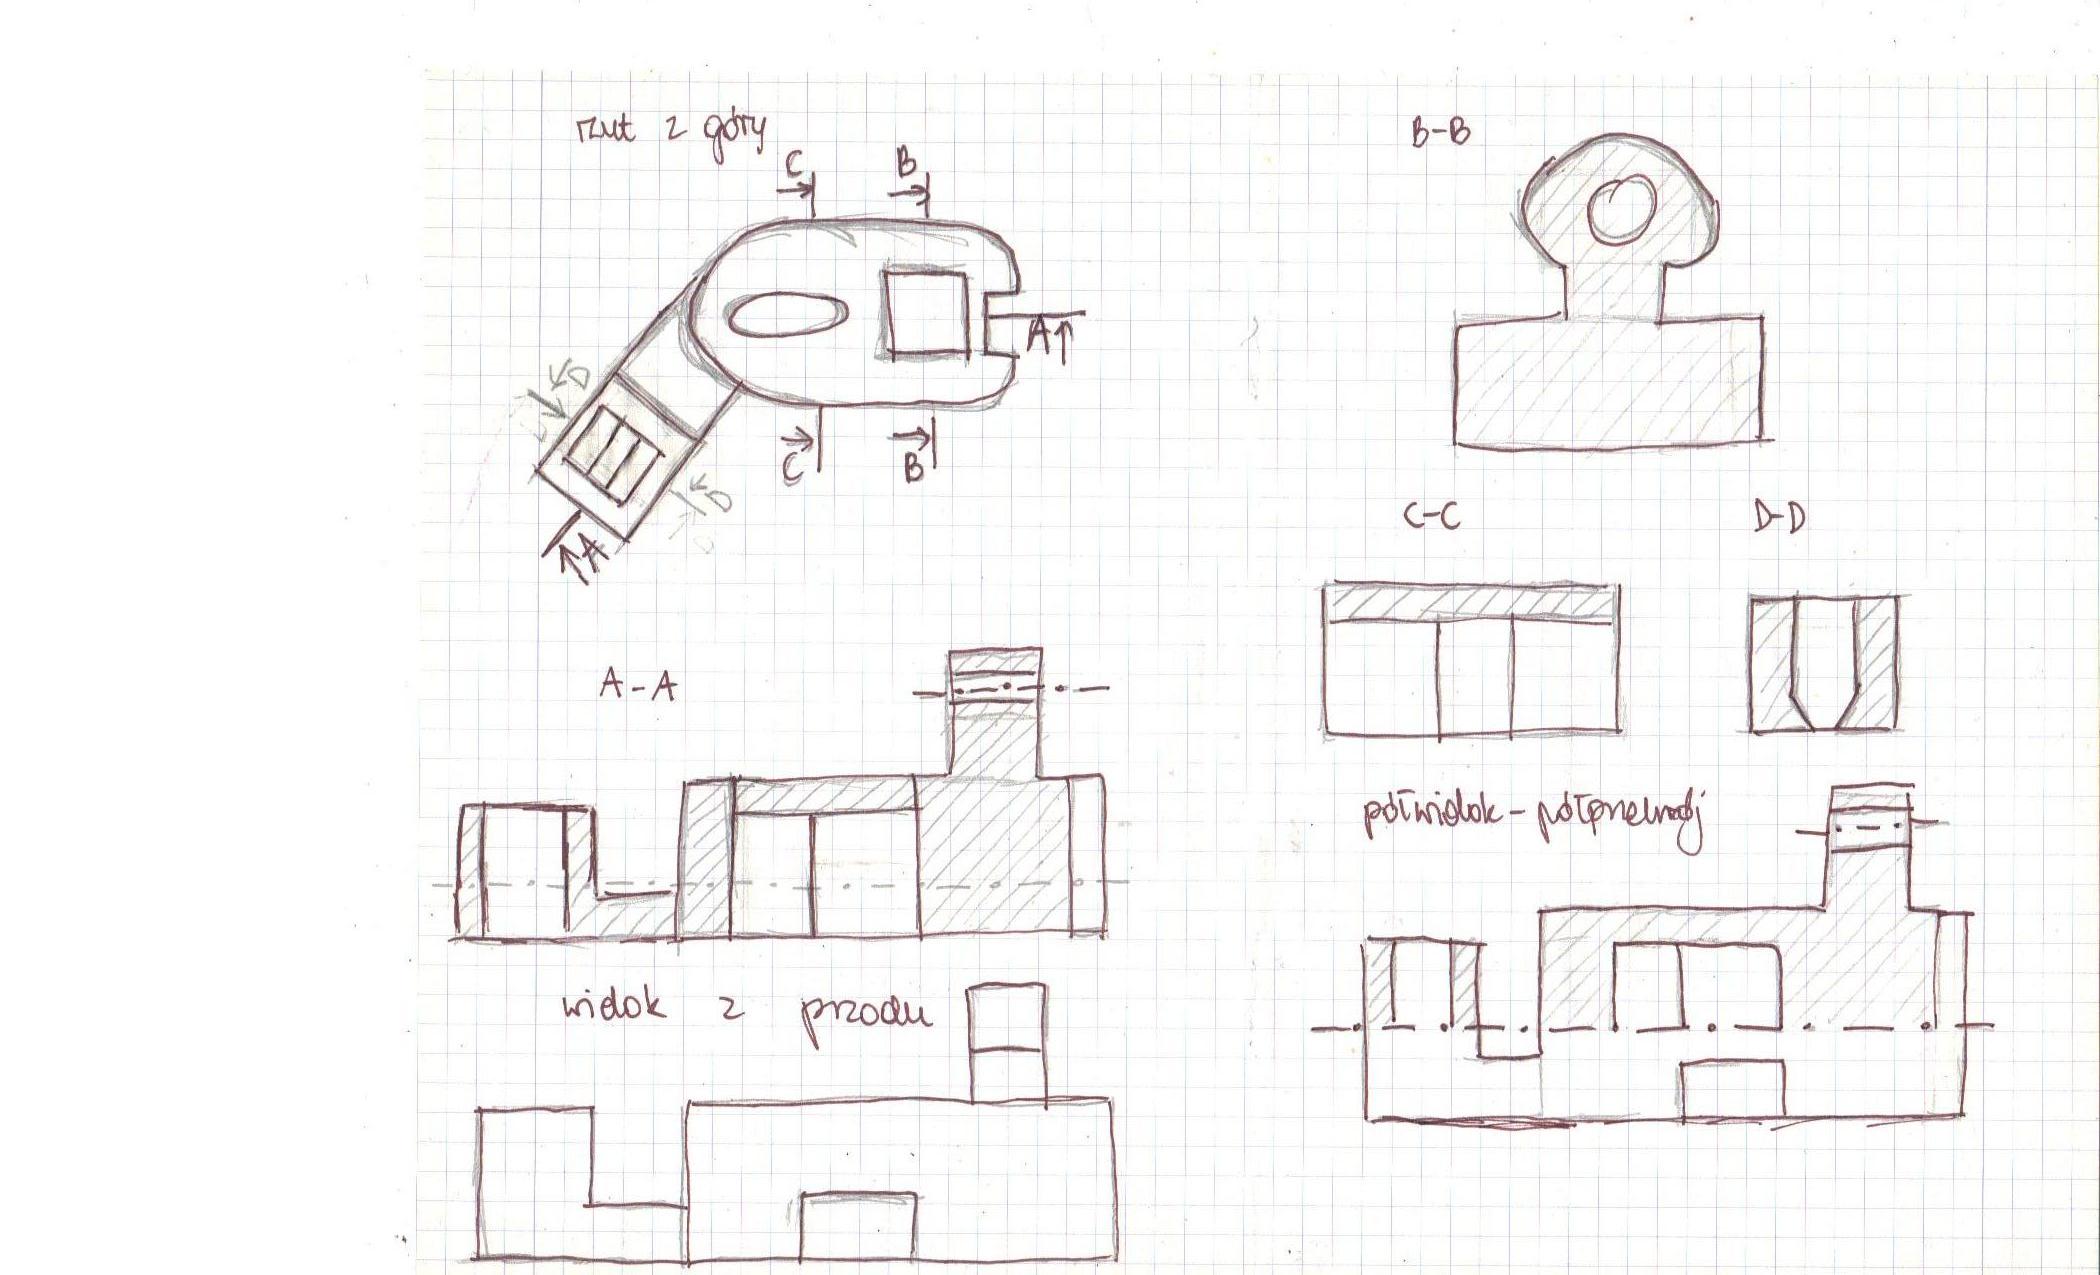 rzut z góry
C
B
A
D
D
A
C
B
A-A
widok z przodu
B-B
C-C
D-D
półwidok - półprzekrój